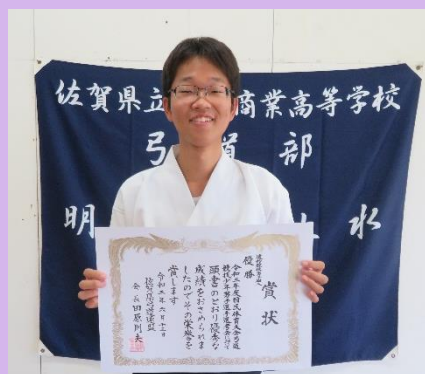 佐賀県立 商業高等学校
弓道部
明 水
賞状
優勝
頭書のとおり優秀な
成績をおさめられま
したのでその栄誉を
賞します
令和三年六月十三日
佐賀県弓道連盟
会長